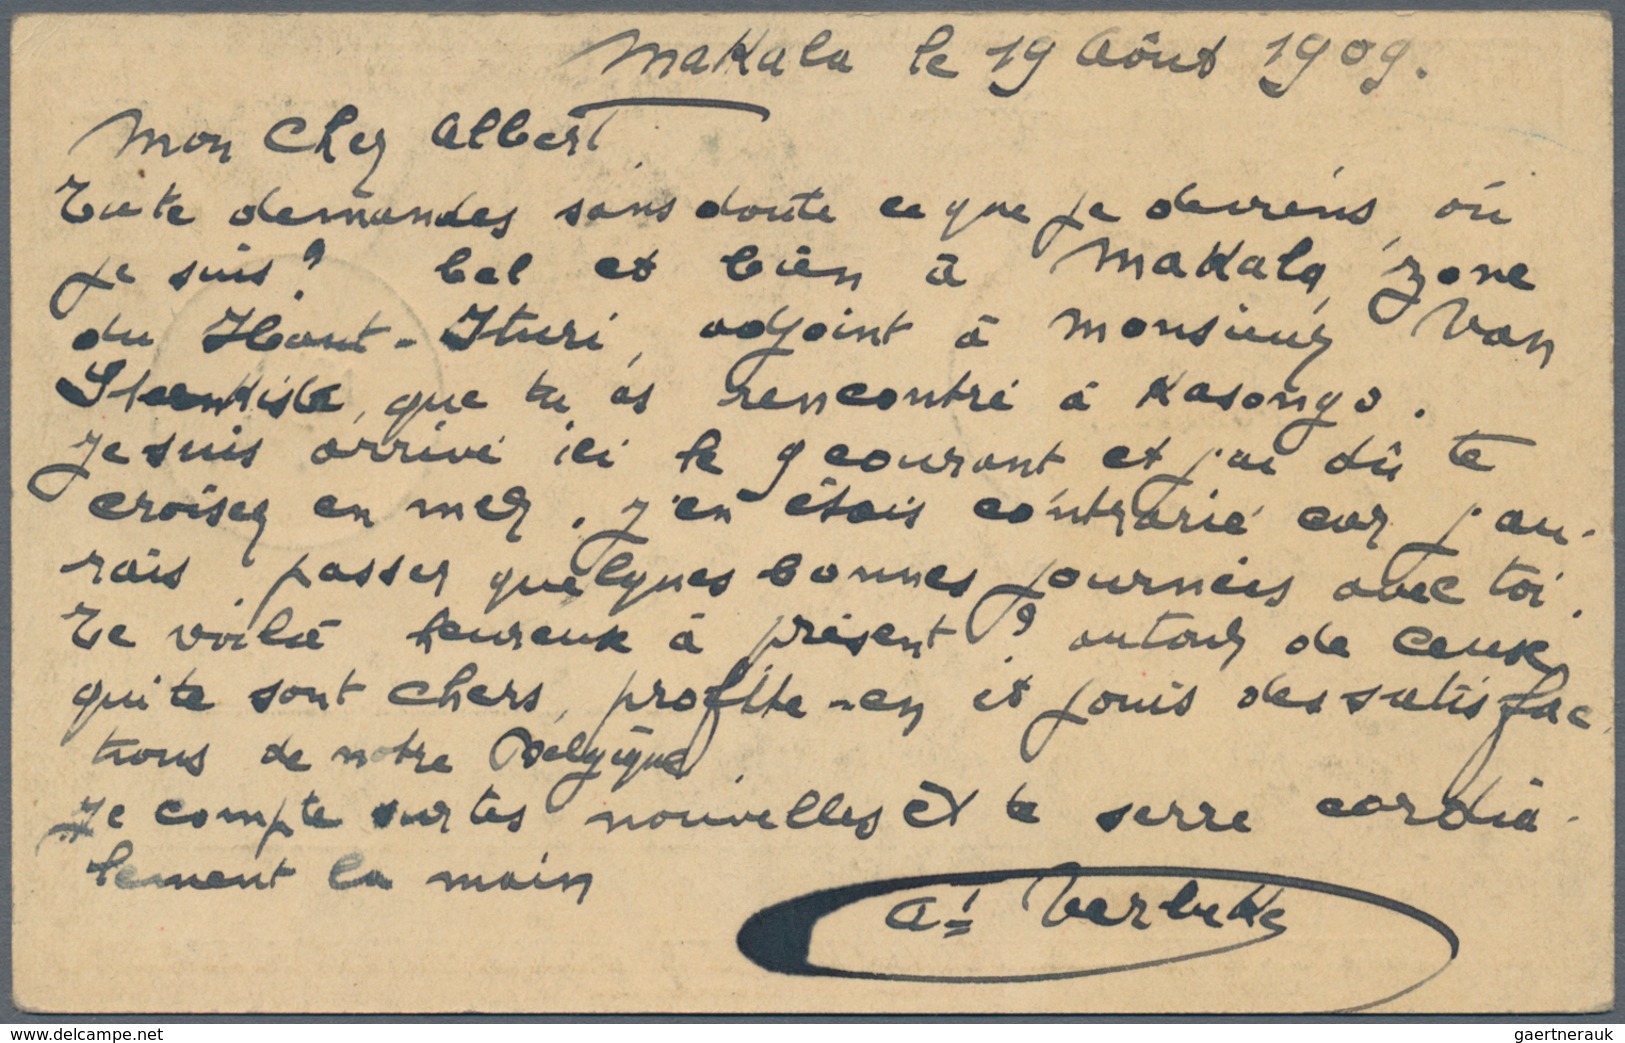 Makala le 19 Aôut 1909.
Mon Cher Albert
Tu te demandes sans doute ce que je deviens, où
je suis? bel et bien à Makala, zone
du Haut-Ituri, adjoint à Monsieur Van
que tu as rencontré à Kasongo.
Je suis arrivé ici le 9 courant et j'ai dû te
croiser en mer. J'en étais contrarié car j'au-
rais passer quelques bonnes journées avec toi.
Te voilà heureux à présent? autour de ceux
qui te sont chers, profite-en et jouis des satisfac
tions de notre Belgique.
Je compte sur tes nouvelles et te serre cordia-
lement la main
At Verbeke
gaertnerauk @ delcampe.net
gaertnerauk